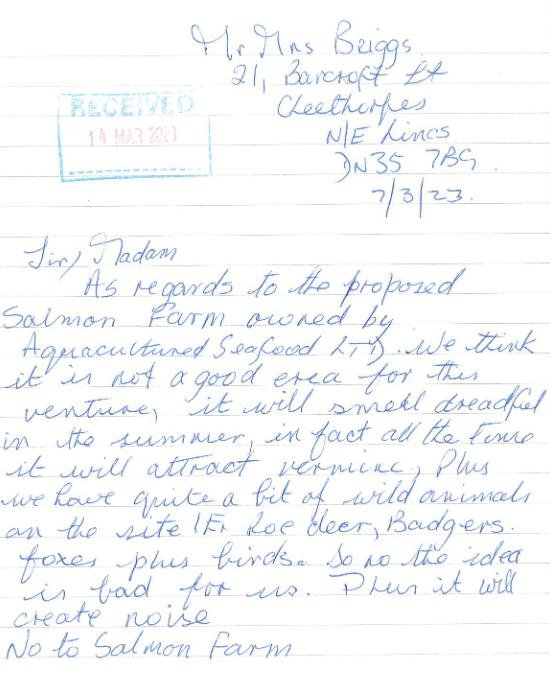 Mr Mrs Briggs
21, Barcroft St
Cleethorpes
N/E Lincs
RECEIVED
14 MAR 2023
DN35 7BG.
7/3/23.
Sir/ Madam
As regards to the proposed
Salmon Farm owned by
Aquacultured Seafood LTD. We think
it is not a good erea for this
venture, it will smell dreadful
in the summer, in fact all the time
it will attract vermine, Plus
we have quite a bit of wild animals
on the site IE Roe deer, Badgers.
foxes plus birds. So no the idea
is bad for us. Plus it will
create noise
No to Salmon Farm